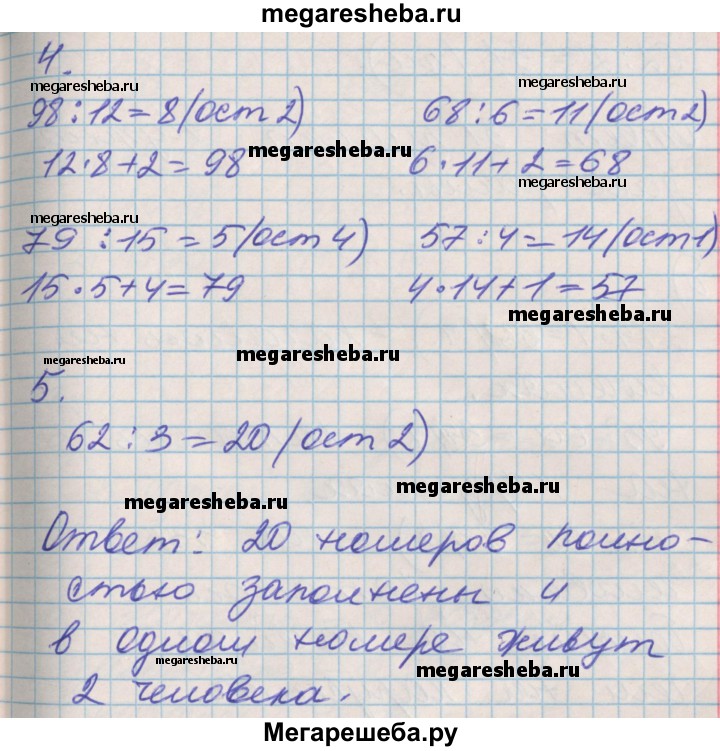 megaresheba.ru
4.
megaresheba.ru megaresheba.ru
98:12=8(ост 2) 68:6=11(ост 2)
megaresheba.ru
12·8+2=98 6·11+2=68
megaresheba.ru
megaresheba.ru
79:15=5(ост 4) 57:4=14(ост 1)
15·5+4=79 4·14+1=57
megaresheba.ru
megaresheba.ru megaresheba.ru
5.
62:3=20(ост 2)
megaresheba.ru megaresheba.ru
Ответ: 20 номеров полно-
стью заполнены и
в одном номере живут
megaresheba.ru megaresheba.ru
2 человека.
Мегарешеба.ру